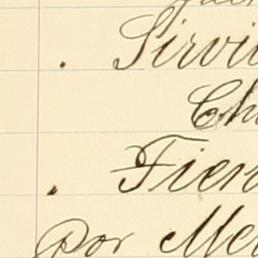 . Sirvi
Ch
. Fien
Por Me